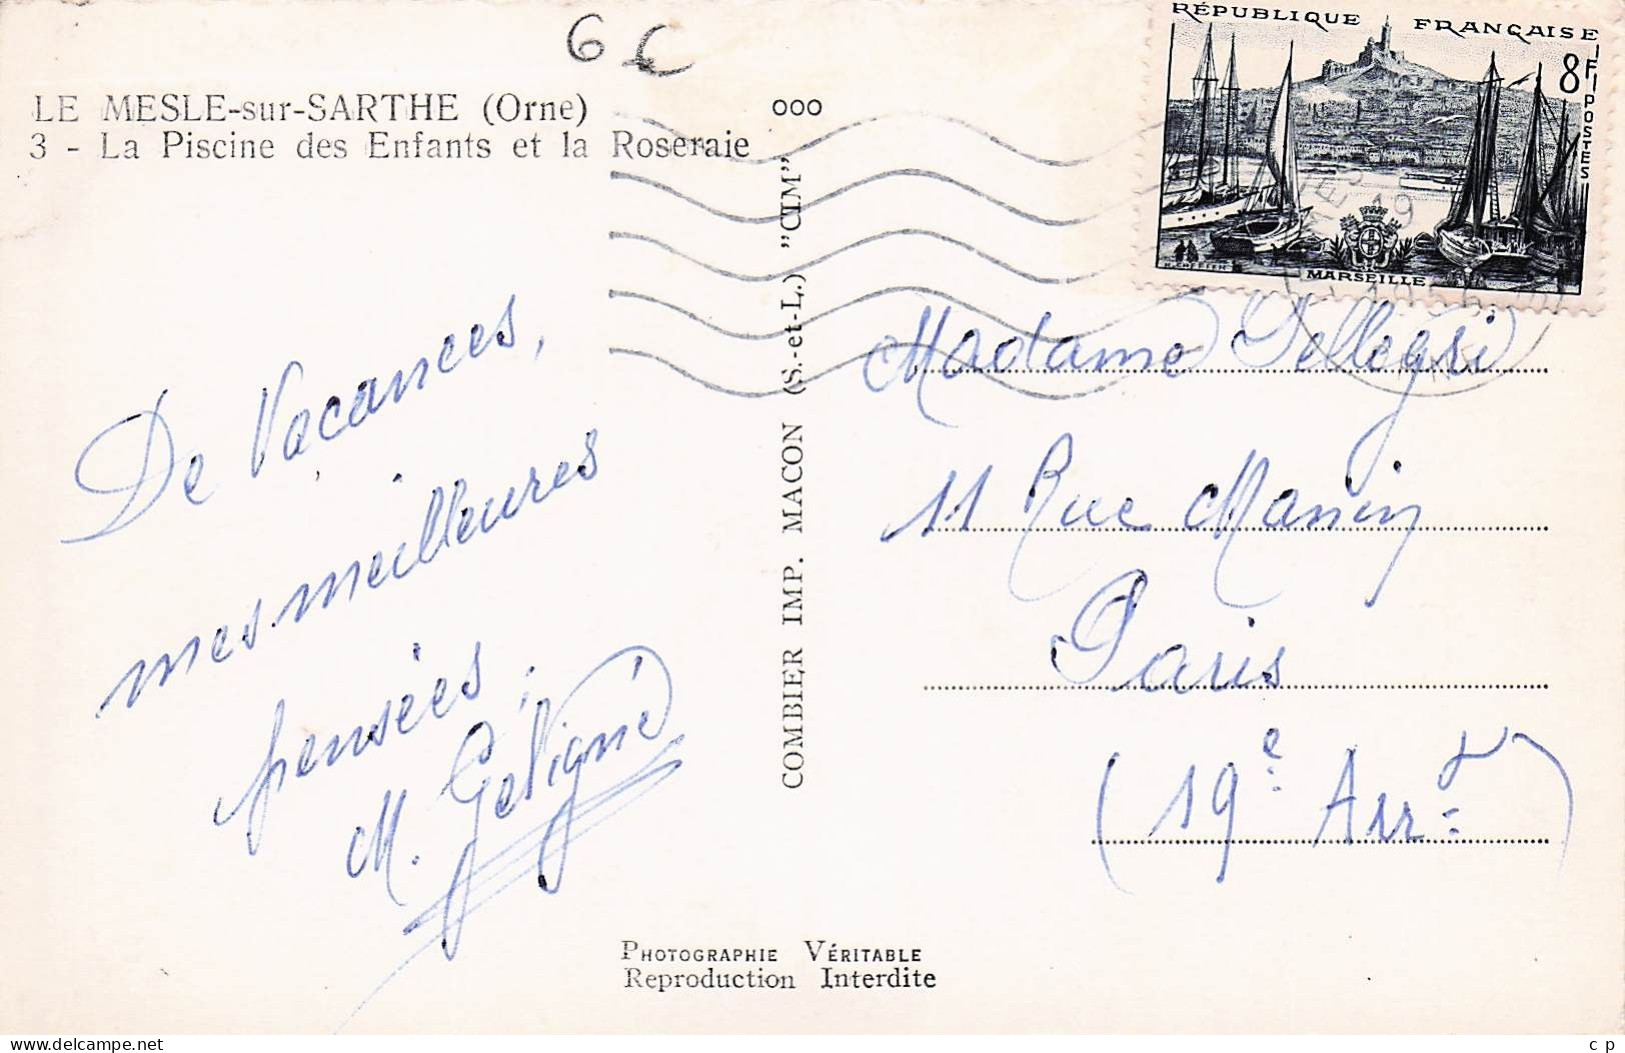 6 €
LE MESLE-sur-SARTHE (Orne)
3 - La Piscine des Enfants et la Roseraie
ooo
RÉPUBLIQUE FRANÇAISE
8F
POSTES
MARSEILLE
19
De Vacances,
mes meilleures
pensées.
M. Gétigné
COMBIER IMP. MACON (S.-et-L.) "CIM"
Madame Pellegri
11 Rue Manin
Paris
(19e Arrt)
PHOTOGRAPHIE VÉRITABLE
Reproduction Interdite
delcampe.net
c p